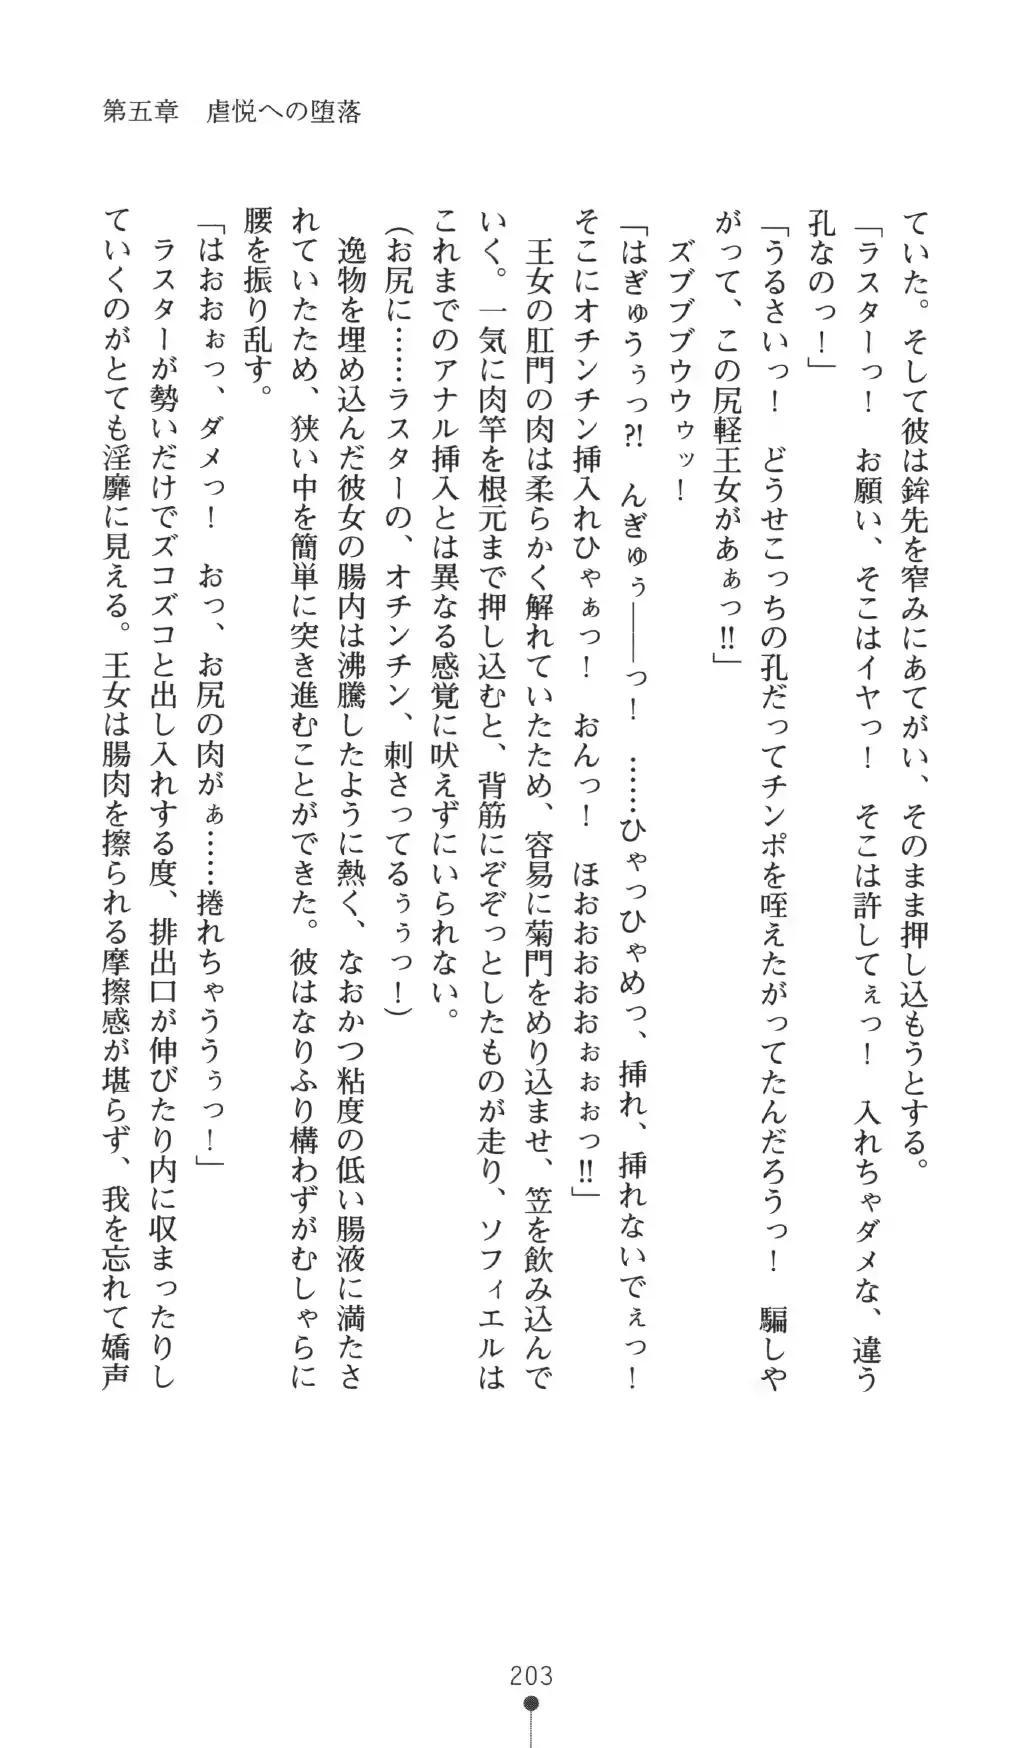 第五章　虐悦への堕落
ていた。そして彼は鉾先を窄みにあてがい、そのまま押し込もうとする。
「ラスターっ！　お願い、そこはイヤっ！　そこは許してぇっ！　入れちゃダメな、違う
孔なのっ！」
「うるさいっ！　どうせこっちの孔だってチンポを咥えたがってたんだろうっ！　騙しや
がって、この尻軽王女がぁぁっ!!」
ズブブブウウゥッ！
「はぎゅうぅっ?!　んぎゅぅ――っ！　……ひゃっひゃめっ、挿れ、挿れないでぇっ！
そこにオチンチン挿入れひゃぁっ！　おんっ！　ほおおおおぉぉぉっ!!」
王女の肛門の肉は柔らかく解れていたため、容易に菊門をめり込ませ、笠を飲み込んで
いく。一気に肉竿を根元まで押し込むと、背筋にぞぞっとしたものが走り、ソフィエルは
これまでのアナル挿入とは異なる感覚に吠えずにいられない。
（お尻に……ラスターの、オチンチン、刺さってるぅぅっ！）
逸物を埋め込んだ彼女の腸内は沸騰したように熱く、なおかつ粘度の低い腸液に満たさ
れていたため、狭い中を簡単に突き進むことができた。彼はなりふり構わずがむしゃらに
腰を振り乱す。
「はおおぉっ、ダメっ！　おっ、お尻の肉がぁ……捲れちゃううぅっ！」
ラスターが勢いだけでズコズコと出し入れする度、排出口が伸びたり内に収まったりし
ていくのがとても淫靡に見える。王女は腸肉を擦られる摩擦感が堪らず、我を忘れて嬌声
203